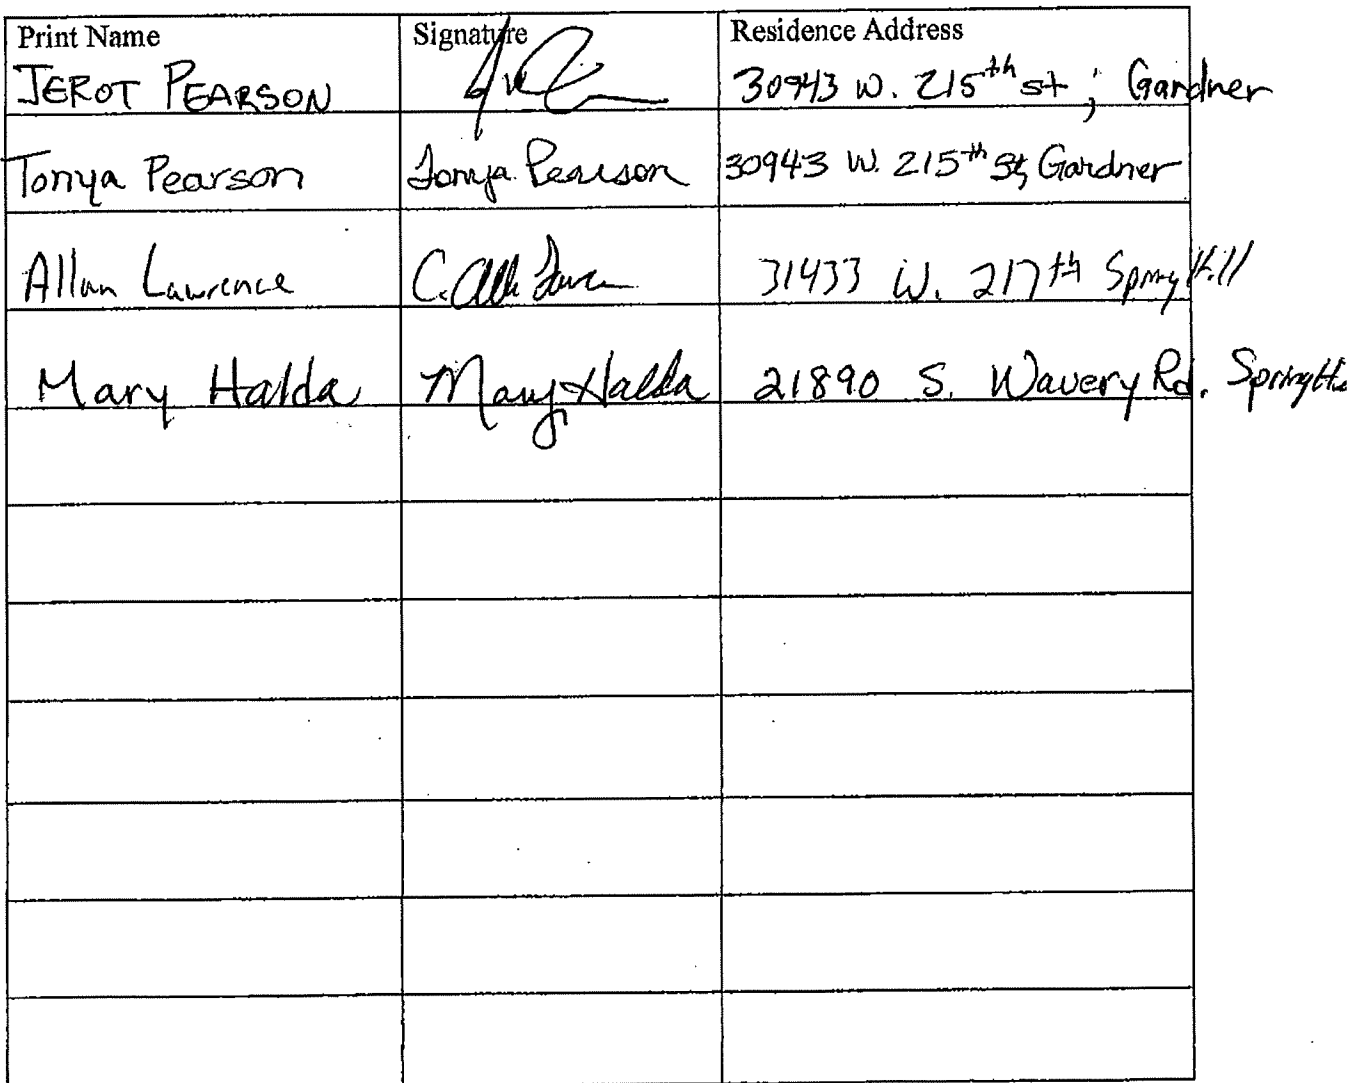 Print Name Signature Residence Address
JEROT PEARSON 30943 W. 215th st ; Gardner
Tonya Pearson Tonya Pearson 30943 W. 215th St, Gardner
Allan Lawrence C. 31433 W. 217th Spring Hill
Mary Halda Mary Halda 21890 S. Wavery Rd. Spring